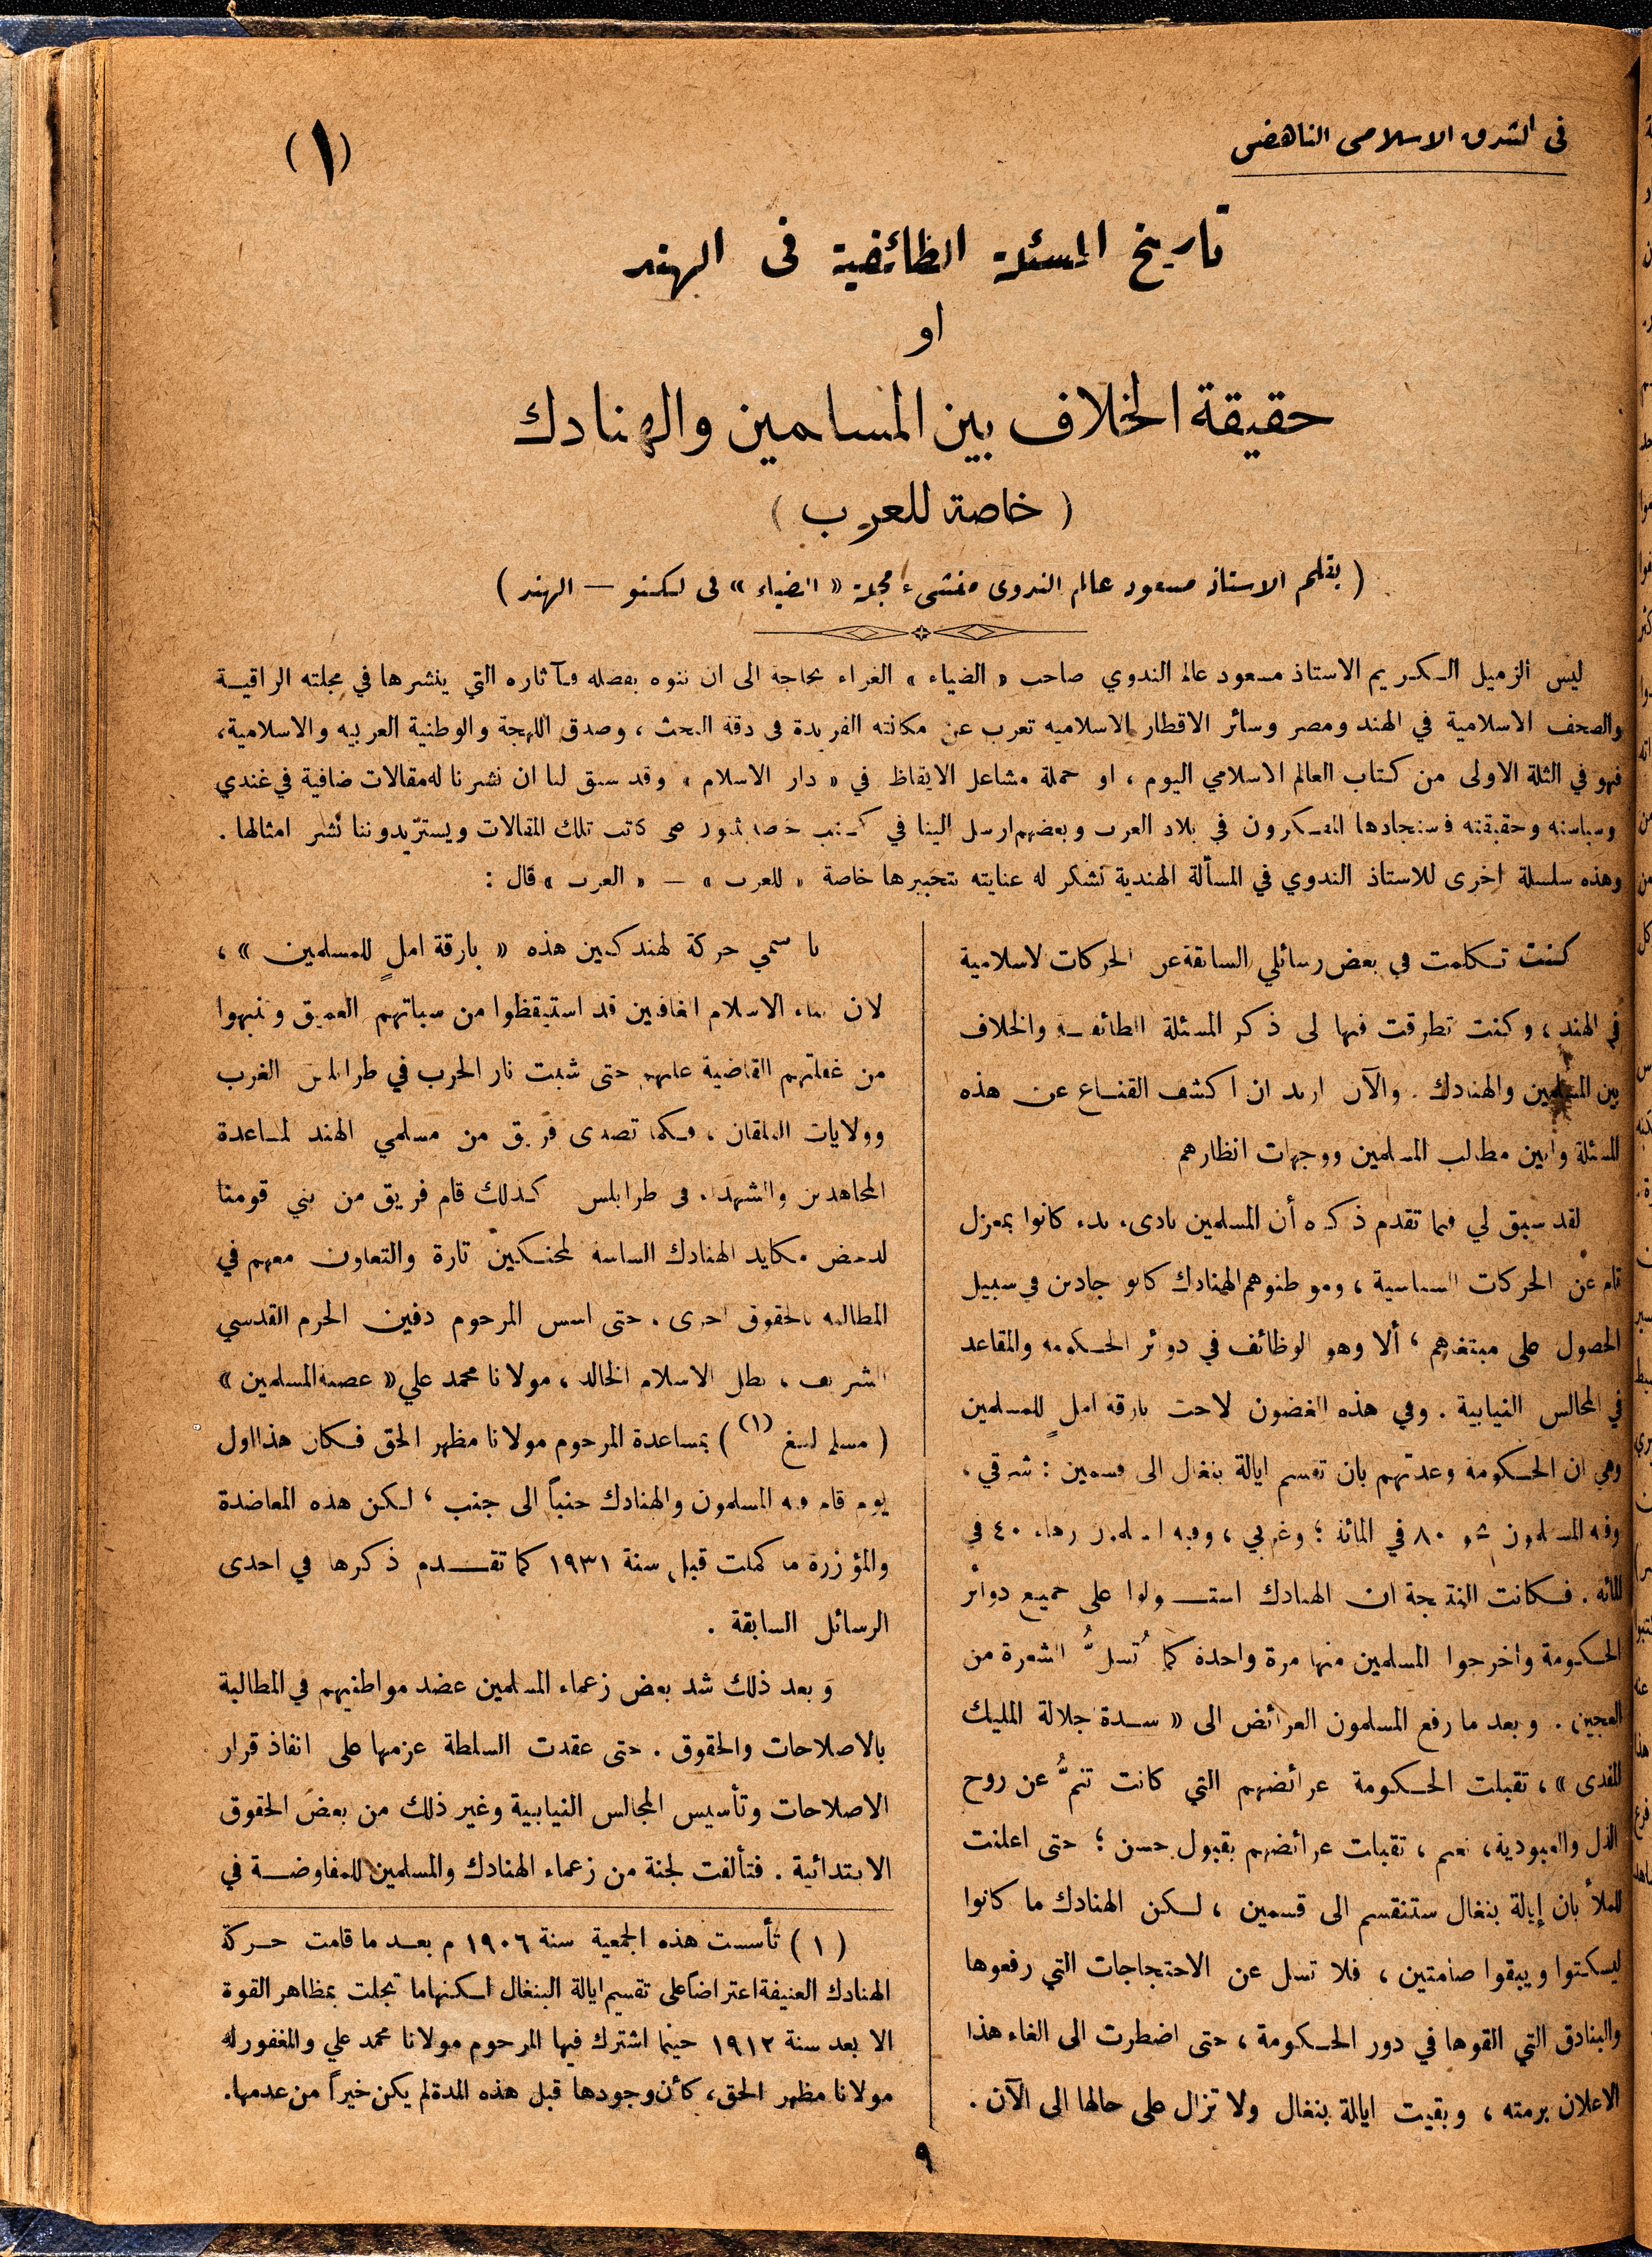 في الشرق الاسلامي الناهض
(١)
تاريخ المسئلة الطائفية في الهند
او
حقيقة الخلاف بين المسلمين والهنادك
( خاصة للعرب )
( بقلم الاستاذ مسعود عالم الندوي منشىء مجلة « الضياء » في لكنو — الهند )
ليس الزميل الكريم الاستاذ مسعود عالم الندوي صاحب « الضياء » الغراء بحاجة الى ان ننوه بفضله وبآثاره التي ينشرها في مجلته الراقية
والصحف الاسلامية في الهند ومصر وسائر الاقطار الاسلامية تعرب عن مكانته الفريدة في دقة البحث ، وصدق اللهجة والوطنية العربية والاسلامية،
فهو في الثلة الاولى من كتاب العالم الاسلامي اليوم ، او حملة مشاعل الايقاظ في « دار الاسلام » وقد سبق لنا ان نشرنا له مقالات ضافية في غندي
وسياسته وحقيقته فاستجادها المفكرون في بلاد العرب وبعضهم ارسل الينا في كتب خاصة عن كاتب تلك المقالات ويستزيدوننا نشر امثالها .
وهذه سلسلة اخرى للاستاذ الندوي في المسألة الهندية نشكر له عنايته بتحبيرها خاصة « للعرب » — « العرب » قال :
كنت تكلمت في بعض رسائلي السابقة عن الحركات الاسلامية
في الهند ، وكنت تطرقت فيها الى ذكر المسئلة الطائفية والخلاف
بين المسلمين والهنادك . والآن اريد ان اكشف القناع عن هذه
المسئلة وابين مطالب المسلمين ووجهات انظارهم
لقد سبق لي فيما تقدم ذكره أن المسلمين بادىء بدء كانوا بمعزل
تام عن الحركات السياسية ، ومواطنوهم الهنادك كانوا جادين في سبيل
الحصول على مبتغاهم ، ألا وهو الوظائف في دوائر الحكومة والمقاعد
في المجالس النيابية . وفي هذه الغضون لاحت بارقة املٍ للمسلمين
وهي ان الحكومة وعدتهم بان تقسم ايالة بنغال الى قسمين : شرقي ،
وفيه المسلمون ٨٠ في المائة ؛ وغربي ، وفيه المسلمون زهاء ٤٠ في
المائة . فكانت النتيجة ان الهنادك استولوا على جميع دوائر
الحكومة واخرجوا المسلمين منها مرة واحدة كما تُسلُّ الشعرة من
العجين . وبعد ما رفع المسلمون العرائض الى « سدة جلالة المليك
المفدى » ، تقبلت الحكومة عرائضهم التي كانت تنمُّ عن روح
الذل والعبودية ، نعم ، تقبلت عرائضهم بقبول حسن ؛ حتى اعلنت
للملأ بان إيالة بنغال ستنقسم الى قسمين ، لكن الهنادك ما كانوا
ليسكتوا ويبقوا صامتين ، فلا تسل عن الاحتجاجات التي رفعوها
والبنادق التي القوها في دور الحكومة ، حتى اضطرت الى الغاء هذا
الاعلان برمته ، وبقيت ايالة بنغال ولا تزال على حالها الى الآن .
سمي حركة الهندكيين هذه « بارقة املٍ للمسلمين » ،
لان ابناء الاسلام الغافلين قد استيقظوا من سباتهم العميق وتنبهوا
من غفلتهم القاضية عليهم حتى شبت نار الحرب في طرابلس الغرب
وولايات البلقان ، فكما تصدى فريق من مسلمي الهند لمساعدة
المجاهدين والشهداء في طرابلس كذلك قام فريق من بني قومنا
لدحض مكايد الهنادك الساسة المحنكين تارة والتعاون معهم في
المطالبة بالحقوق اخرى . حتى اسس المرحوم دفين الحرم القدسي
الشريف ، بطل الاسلام الخالد ، مولانا محمد علي « عصبة المسلمين »
( مسلم ليغ (١) ) بمساعدة المرحوم مولانا مظهر الحق فكان هذا اول
يوم قام فيه المسلمون والهنادك جنباً الى جنب ، لكن هذه المعاضدة
والمؤازرة ما كملت قبل سنة ١٩٣١ كما تقدم ذكرها في احدى
الرسائل السابقة .
وبعد ذلك شد بعض زعماء المسلمين عضد مواطنيهم في المطالبة
بالاصلاحات والحقوق . حتى عقدت السلطة عزمها على انفاذ قرار
الاصلاحات وتأسيس المجالس النيابية وغير ذلك من بعض الحقوق
الابتدائية . فتألفت لجنة من زعماء الهنادك والمسلمين للمفاوضة في
( ١ ) تأسست هذه الجمعية سنة ١٩٠٦ م بعد ما قامت حركة
الهنادك العنيفة اعتراضاً على تقسيم ايالة البنغال لكنها ما تجلت بمظاهر القوة
الا بعد سنة ١٩١٢ حينما اشترك فيها المرحوم مولانا محمد علي والمغفور له
مولانا مظهر الحق ، كأن وجودها قبل هذه المدة لم يكن خيراً من عدمها.
٩